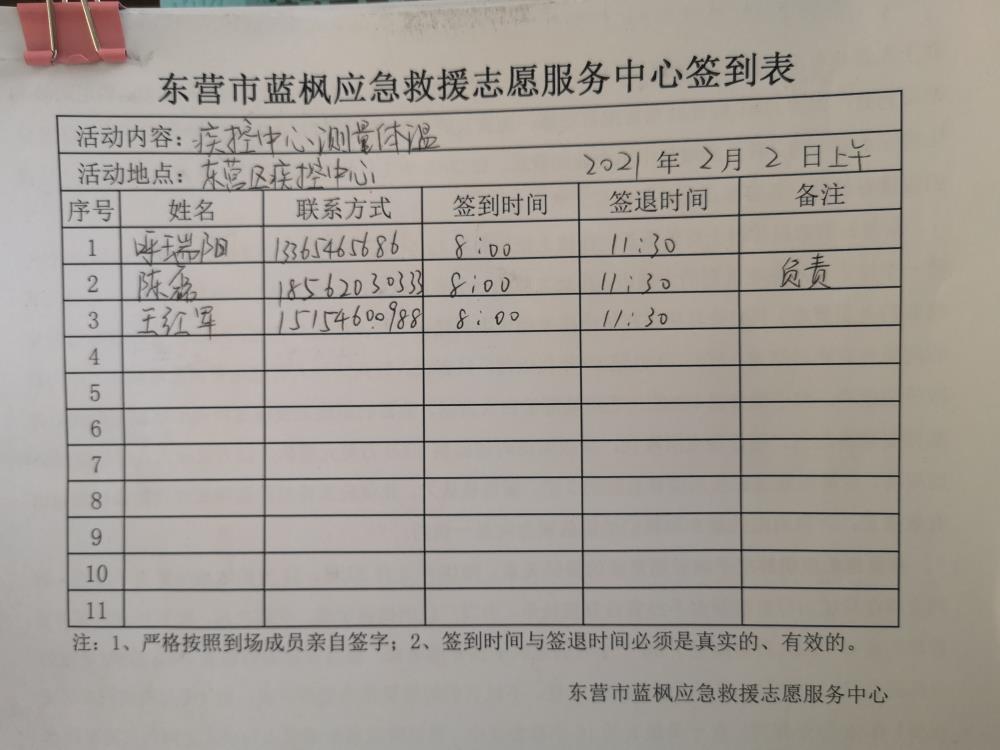 东营市蓝枫应急救援志愿服务中心签到表
活动内容：疾控中心测量体温
活动地点：东营区疾控中心 2021年2月2日上午
序号 姓名 联系方式 签到时间 签退时间 备注
1 呼瑞阳 13365465686 8:00 11:30
2 陈磊 18562030333 8:00 11:30 负责
3 王红军 15154600988 8:00 11:30
4
5
6
7
8
9
10
11
注：1、严格按照到场成员亲自签字；2、签到时间与签退时间必须是真实的、有效的。
东营市蓝枫应急救援志愿服务中心